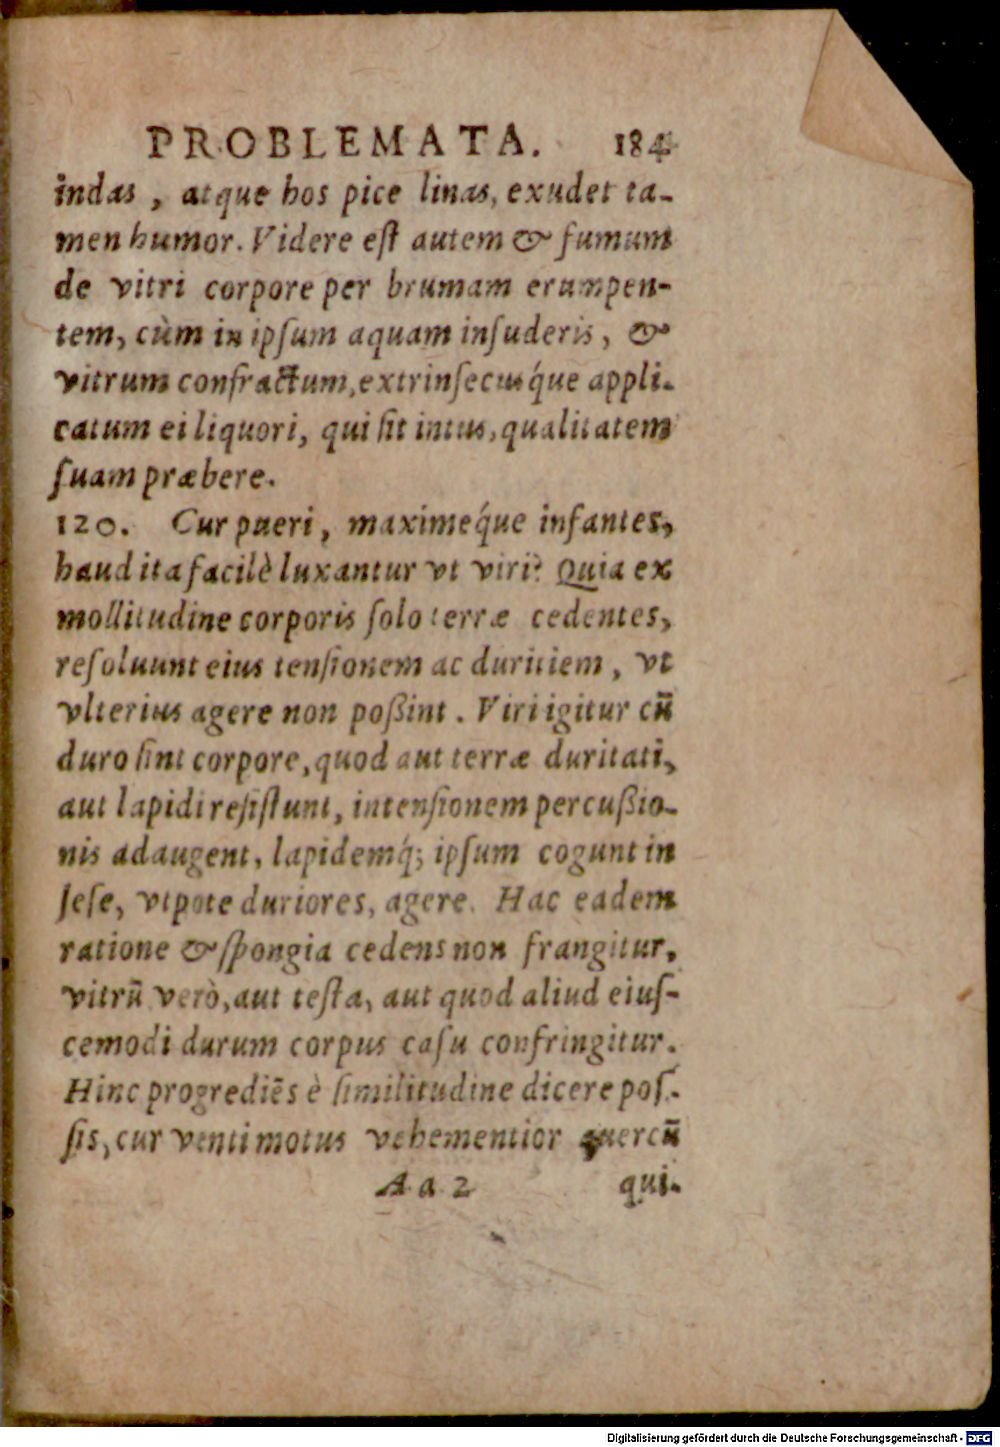 PROBLEMATA. 184
indas, atque hos pice linas, exudet ta-
men humor. Videre eſt autem & fumum
de vitri corpore per brumam erumpen-
tem, cùm in ipſum aquam inſuderis, &
vitrum confractum, extrinſecuśque appli-
catum ei liquori, qui ſit intus, qualitatem
ſuam præbere.
120. Cur pueri, maximeq́ue infantes,
haud ita facilè luxantur vt viri? Quia ex
mollitudine corporis ſolo terræ cedentes,
reſoluunt eius tenſionem ac duritiem, vt
vlterius agere non poßint. Viri igitur cũ
duro ſint corpore, quod aut terræ duritati,
aut lapidi reſiſtunt, intenſionem percußio-
nis adaugent, lapidemq́; ipſum cogunt in
ſeſe, vtpote duriores, agere. Hac eadem
ratione & ſpongia cedens non frangitur,
vitrũ verò, aut teſta, aut quod aliud eiuſ-
cemodi durum corpus caſu confringitur.
Hinc progrediẽs è ſimilitudine dicere poſ-
ſis, cur venti motus vehementior quercũ
A a 2 qui-
Digitalisierung gefördert durch die Deutsche Forschungsgemeinschaft - DFG